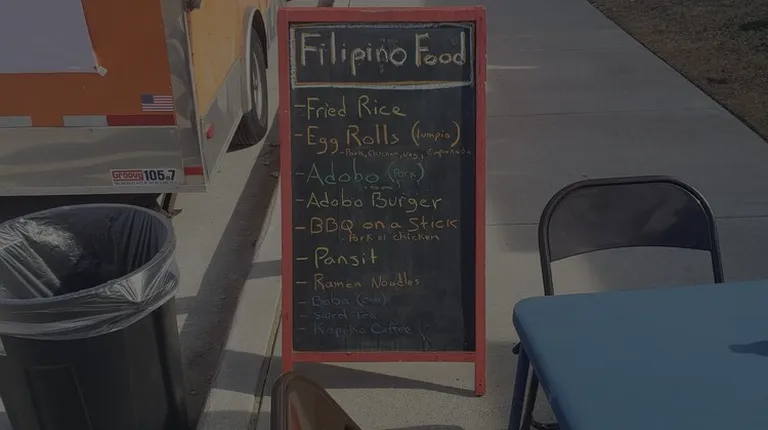 Filipino Food
- Fried Rice
- Egg Rolls (lumpia)
- Pork, Chicken, Veg, Empanada
- Adobo (Pork)
- Adobo Burger
- BBQ on a Stick
- Pork or chicken
- Pansit
- Ramen Noodles
- Boba
- Sweet Tea
- Kapiko Coffee
Groovy 105.7